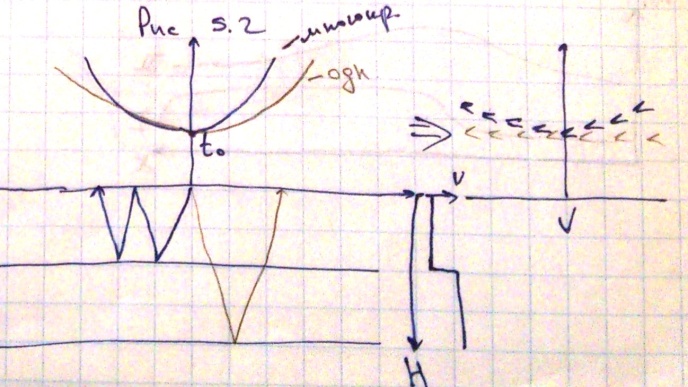 Рис 5.2
многокр.
одн
t₀
v
V
H